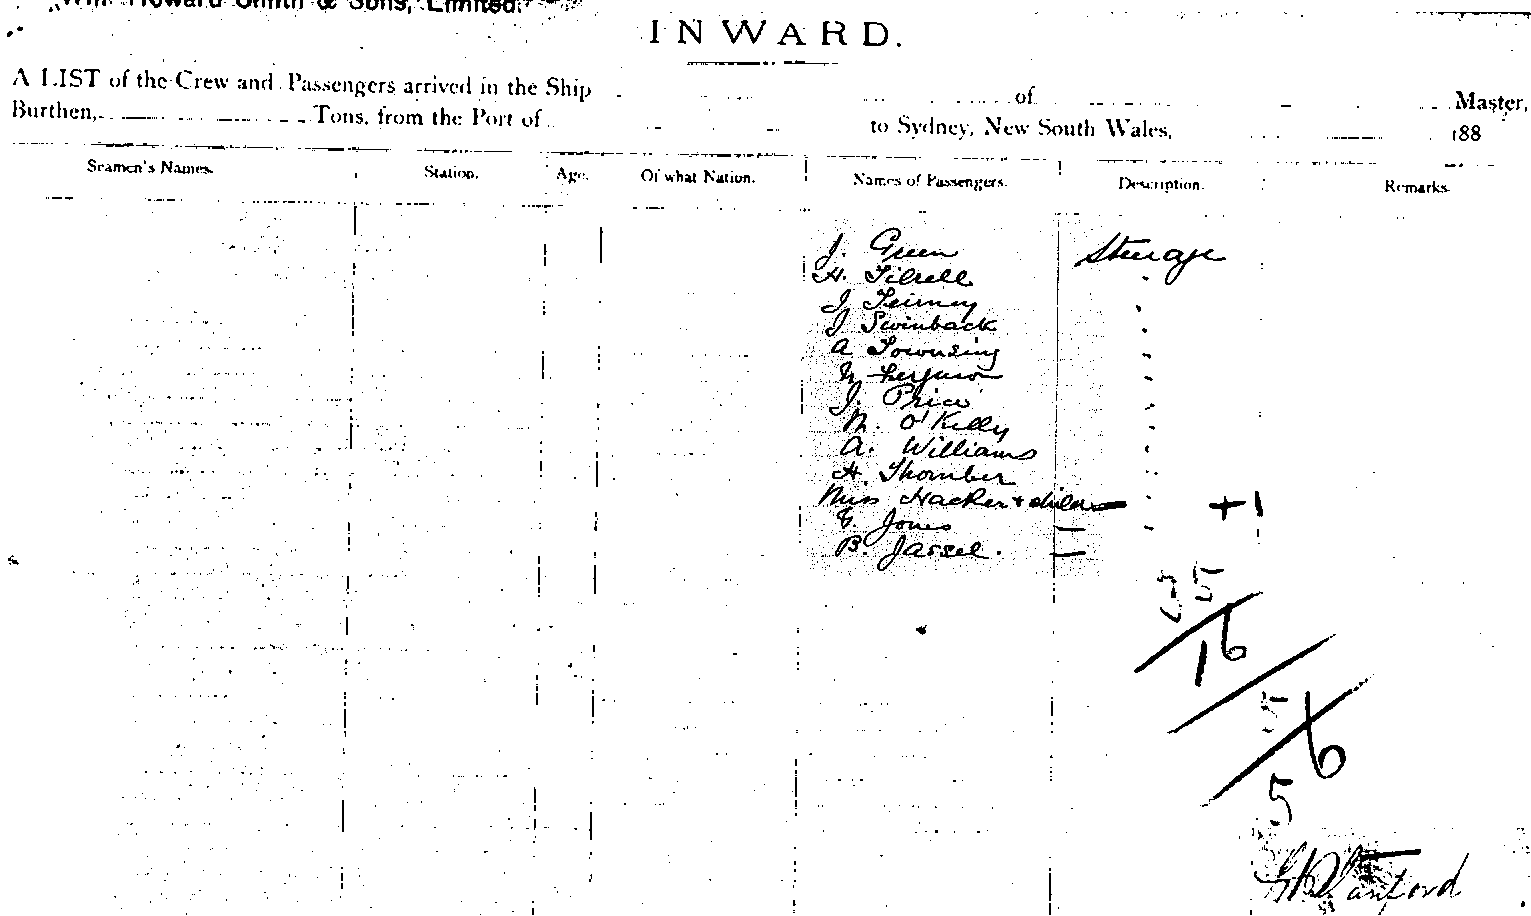 Wm. Howard Smith & Sons, Limited.
INWARD.
A LIST of the Crew and Passengers arrived in the Ship of Master,
Burthen, Tons, from the Port of to Sydney, New South Wales, 188
Seamen's Names. Station. Age. Of what Nation. Names of Passengers. Description. Remarks.
J. Green Steerage
H.
J
J Swinback "
A Townsing "
Ferguson "
J. Price "
M. O'Kelly "
A. Williams "
H. Thomber "
Miss Hacker + child " +1
E. Jones "
B. Jassel.
35
16
5
6
5